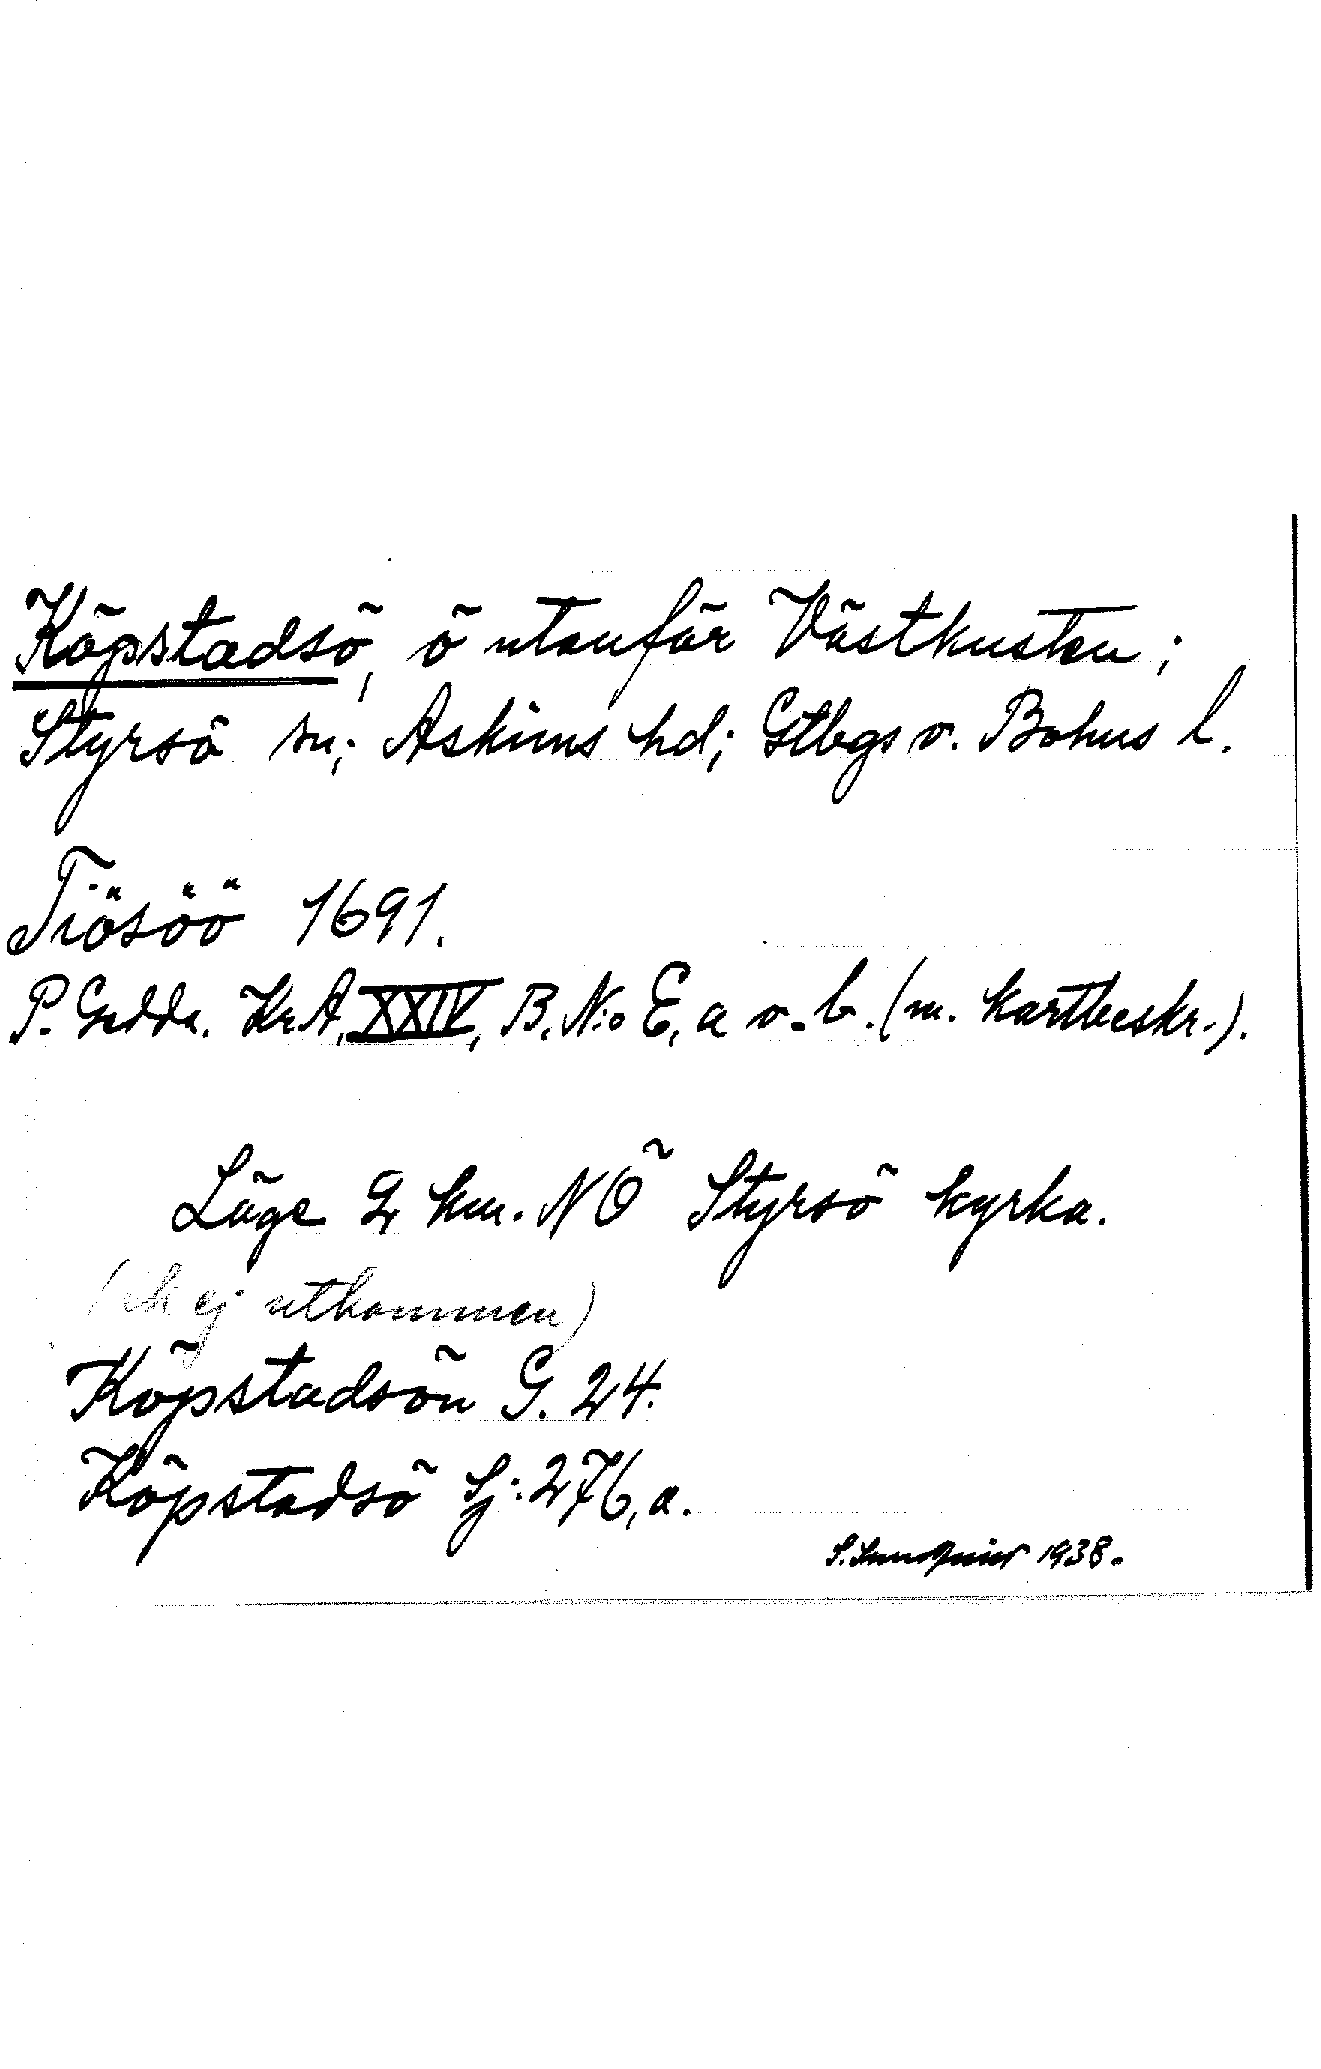 Köpstadsö, ö utanför Västkusten;
Styrsö sn; Askims hd; Gtbgs o. Bohus l.
Tiösöö 1691.
P. Gedda. Kr.A. XXIV, B. N:o E, a o. b. (m. kartbeskr.).
Läge 2 km. NÖ Styrsö kyrka.
(ek ej utkommen)
Köpstadsön G. 24.
Köpstadsö Sj: 276, a.
S. 1938.